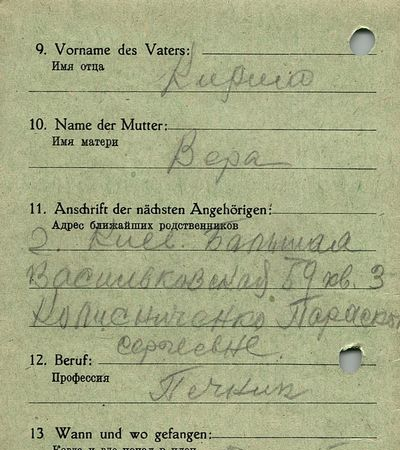 9. Vorname des Vaters:
Имя отца
Кирило
10. Name der Mutter:
Имя матери
Вера
11. Anschrift der nächsten Angehörigen:
Адрес ближайших родственников
г. Киев. Большая
Васильковская 59 кв. 3
Колисниченко Параск
сергеевне
12. Beruf:
Профессия
Печник
13 Wann und wo gefangen: